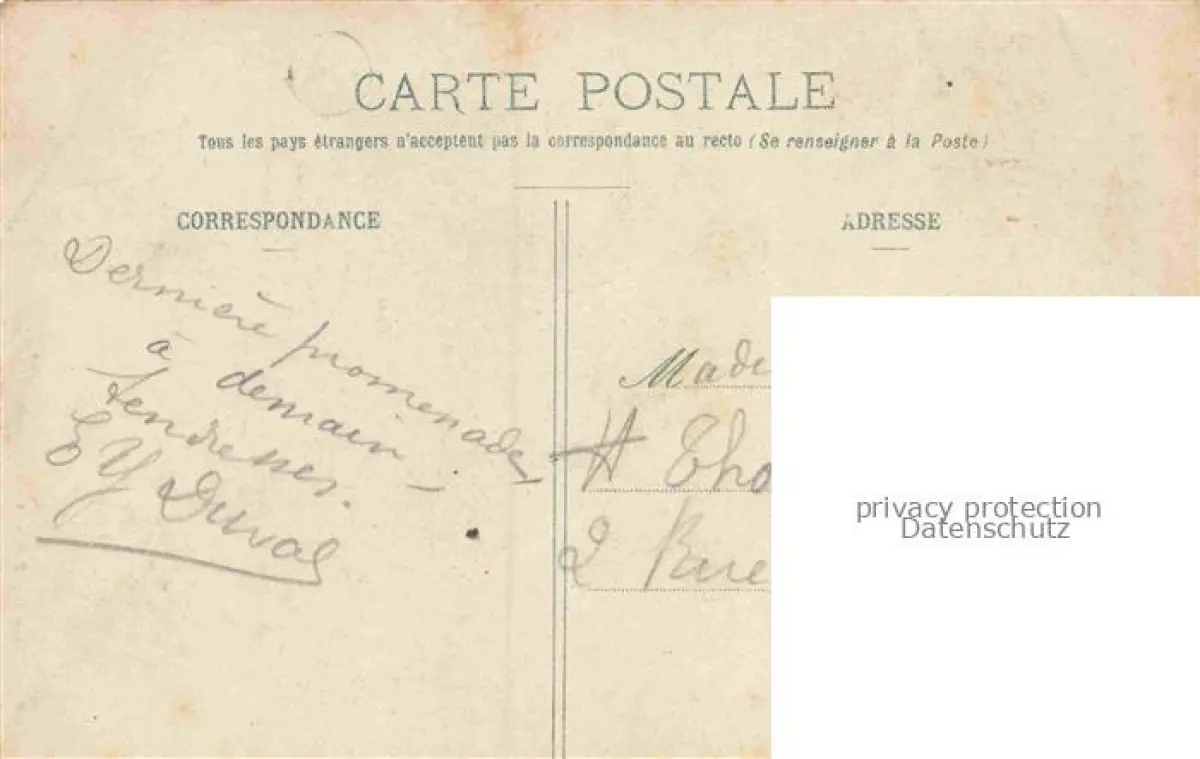 CARTE POSTALE
Tous les pays étrangers n'acceptent pas la correspondance au recto (Se renseigner à la Poste)
CORRESPONDANCE
Dernière promenade
à demain
tendresses.
E Y Duval
ADRESSE
Made
H Tho
2 Rue
privacy protection
Datenschutz